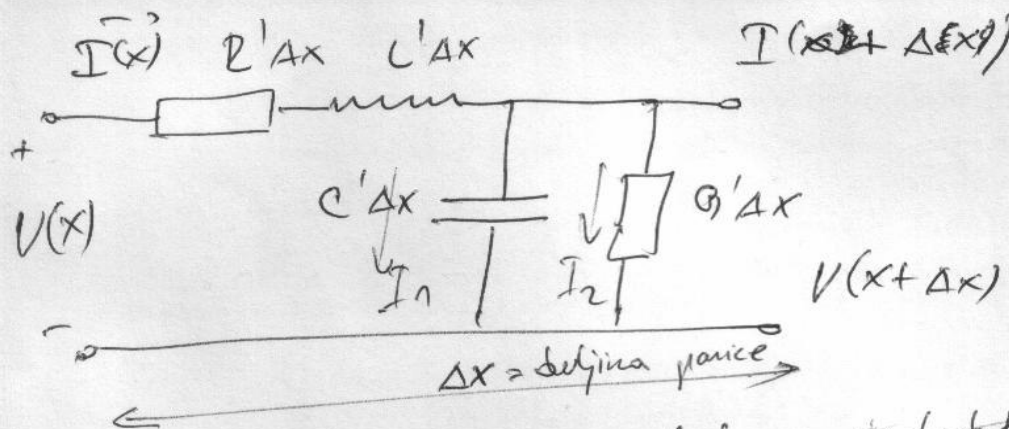 I(x) R'Δx L'Δx I(x + Δx)
+
V(x)
C'Δx G'Δx
I₁ I₂ V(x+Δx)
-
Δx = duljina parice